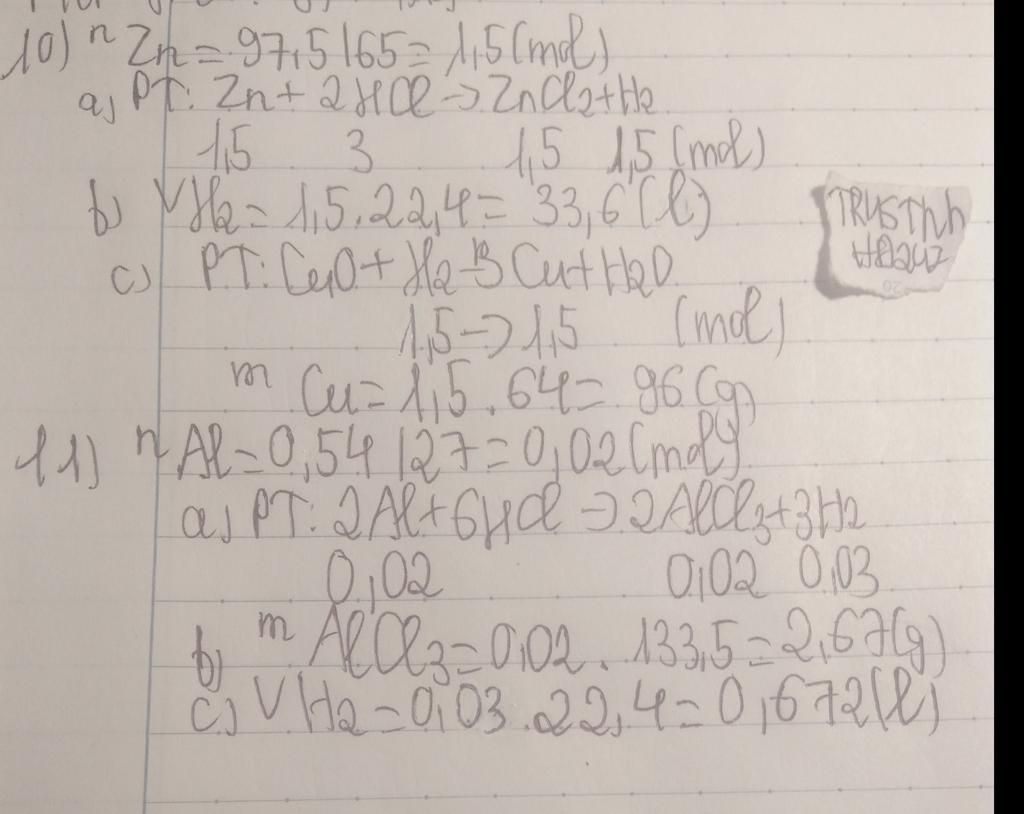 10) nZn = 97,5/65 = 1,5 (mol)
a) PT: Zn + 2HCl → ZnCl2 + H2
1,5 3 1,5 1,5 (mol)
b) VH2 = 1,5 . 22,4 = 33,6 (l)
c) PT: CuO + H2 → Cu + H2O
1,5 → 1,5 (mol)
mCu = 1,5 . 64 = 96 (g)
11) nAl = 0,54/27 = 0,02 (mol)
a) PT: 2Al + 6HCl → 2AlCl3 + 3H2
0,02 0,02 0,03
b) mAlCl3 = 0,02 . 133,5 = 2,67 (g)
c) VH2 = 0,03 . 22,4 = 0,672 (l)